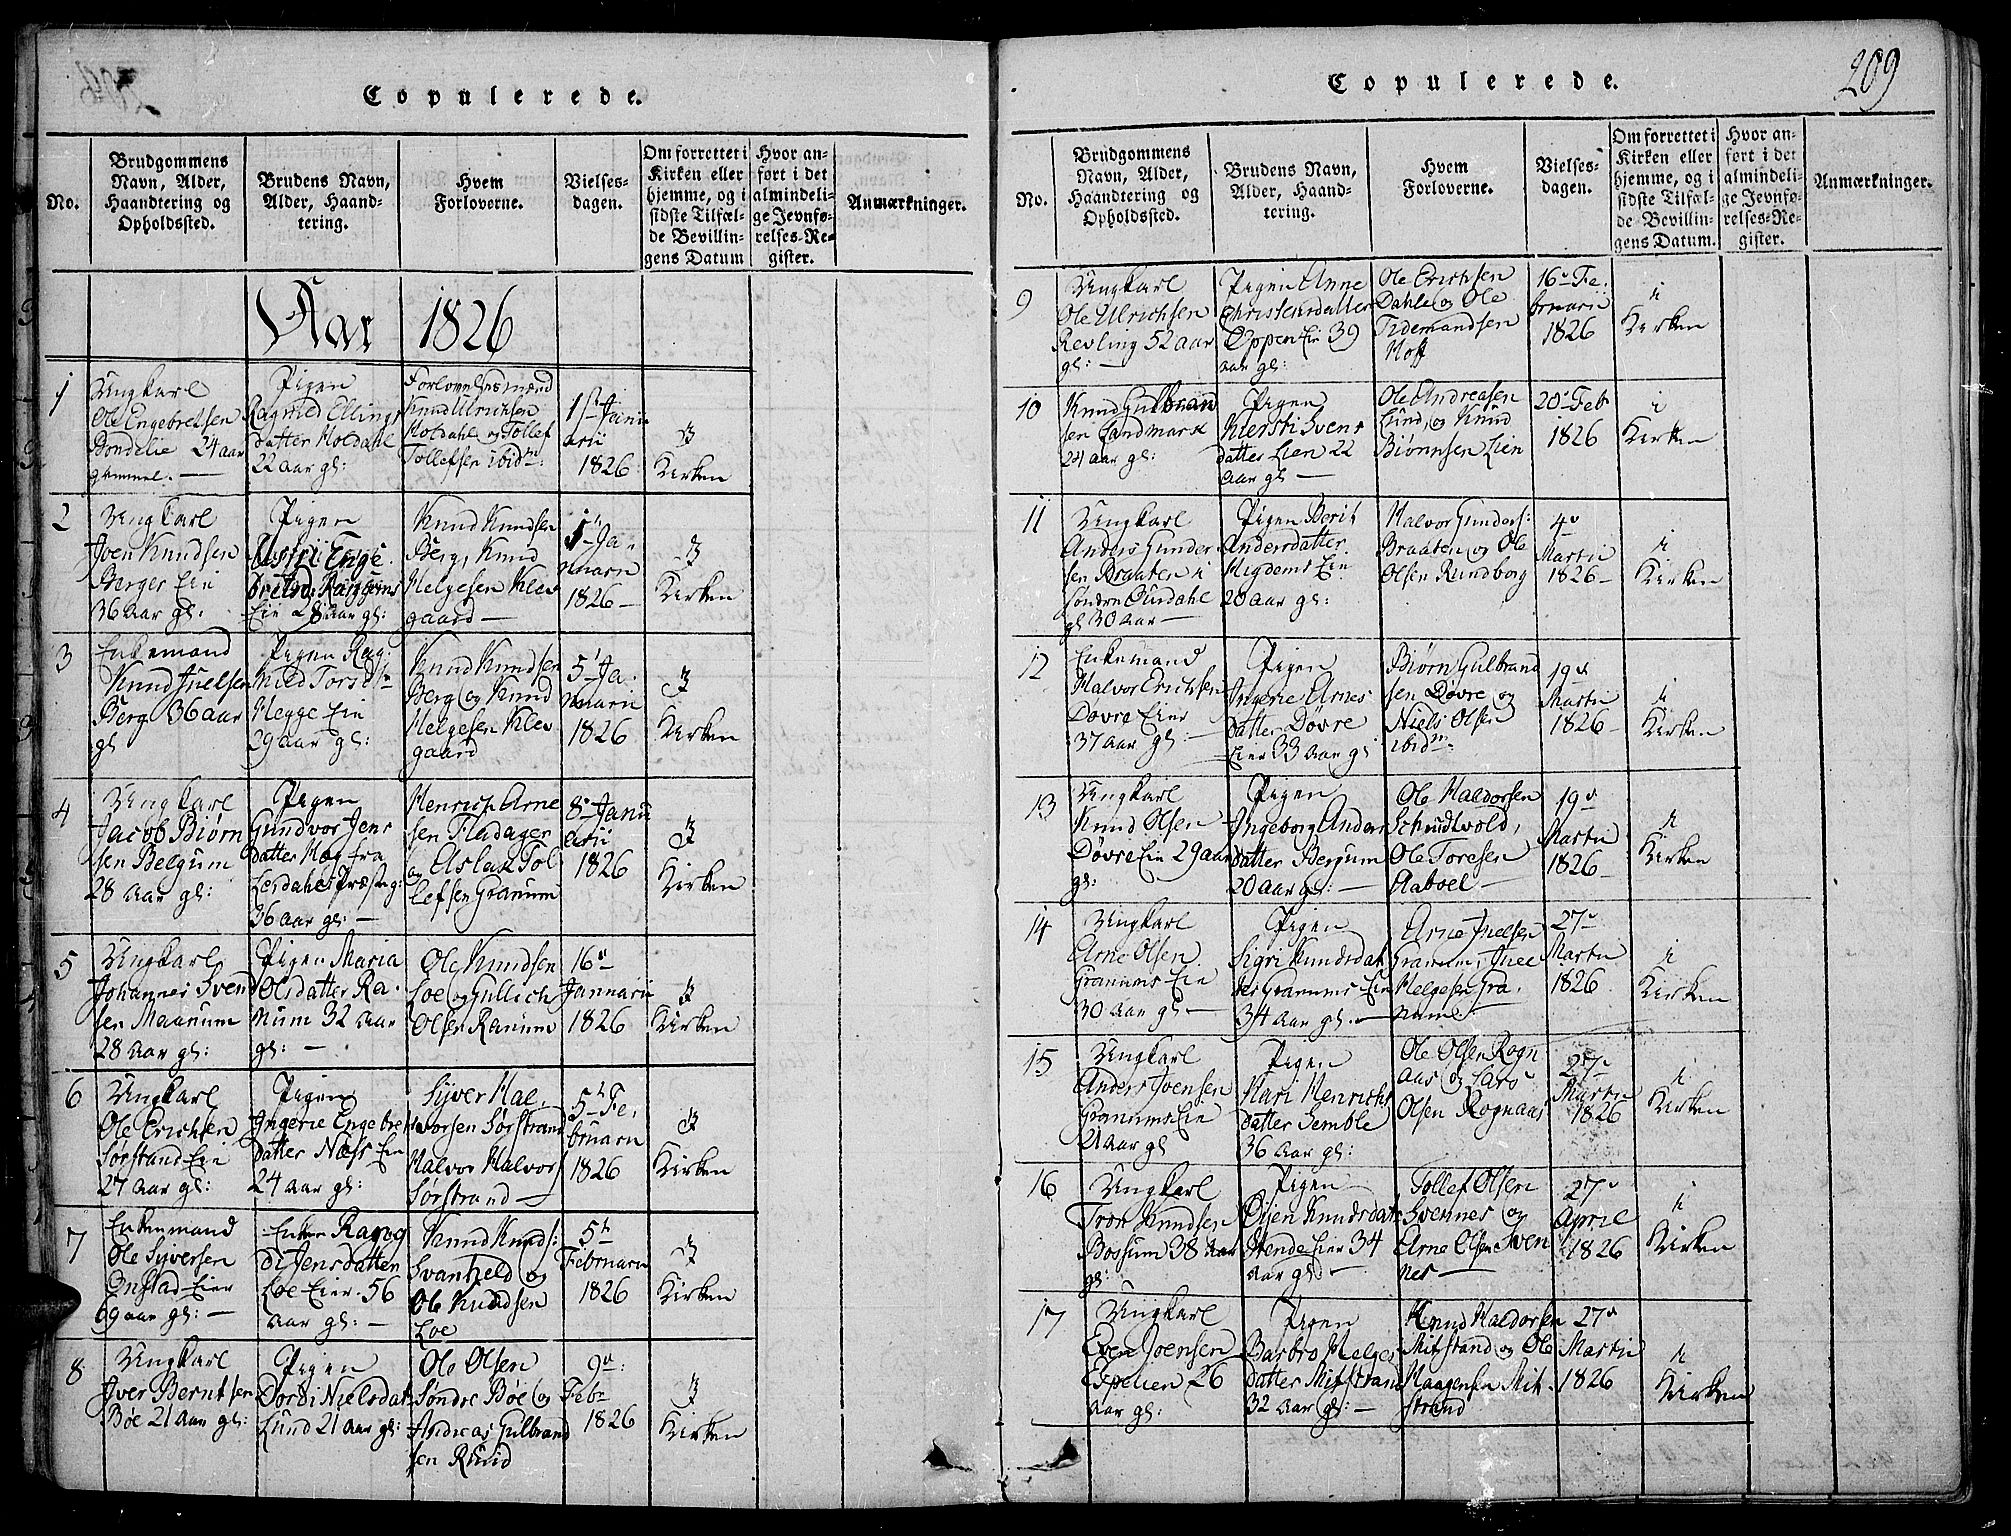 Copulerede.
No.
Brudgommens
Navn, Alder,
Haandtering og
Opholdssted.
Brudens Navn,
Alder, Haand-
tering.
Hvem
Forloverne.
Vielses-
dagen.
Om forrettet i
Kirken eller
hjemme, og i
sidste Tilfæl-
de Bevillin-
gens Datum
Hvor an-
ført i det
almindeli-
ge Jevnfø-
relses-Re-
gister.
Anmærkninger.
Aar 1826
1
Ungkarl
Ole Engebretsen
Bondelie 24 aar
gammel. —
Pigen
Ragnild Ellings
datter Holdahl
22 aar gl:
Forlovelsesmænd
Knud Ulrichsen
Holdahl og Tollef
Tollefsen ibidm:
1st Janu
arii
1826
I
Kirken
2
Ungkarl
Joen Knudsen
Berger Eie
36 Aar gl:
Pigen
Astri Enge
bretsd:
Eie 28 Aar gl:
Knud Knudsen
Berg, Knud
Helgesen Klev
gaard —
1st Ja-
nuarii
1826 —
I
Kirken
3
Enkemand
Knud Juelsen
Berg 36 aar
gl
Pigen Rag:
nild Torsdtr
Hegge Eie
29 aar gl:
Knud Knudsen
Berg og Knud
Helgesen Klev
gaard
5t Ja-
nuarii
1826
I
Kirken
4
Ungkarl
Jacob Biørn
sen Belgum
28 aar gl:
Pigen
Gundvor Jens
datter Høg fra
Lerdahls Præsteg:
36 aar gl: —
Henrich Arne
sen Fladager
og Aslak Tol
lefsen Granum
8de Janu
arii
1826
I
Kirken
5
Ungkarl
Johannes Svend
sen Maanum
28 aar gl:
Pigen Maria
Olsdatter Ra-
num 32 aar
gl: —
Ole Knudsen
Loe og Gullich
Olsen Ranum
16de
Januarii
1826
I
Kirken
6
Ungkarl
Ole Erichsen
Sørstrand Eie
27 aar gl:
Pigen
Ingerie Engebre
datter Næss Eie
24 aar gl:
Syver Hal-
vorsen Sørstrand
Halvor Halvors
Sørstrand —
5te Fe-
bruarii
1826
I
Kirken
7
Enkemand
Ole Syversen
Onstad Eier
69 aar gl: —
Enken Rang
di Jensdatter
Loe Eier 56
aar gl: —
Knud Knuds:
Svanheld og
Ole Knudsen
Loe
5te
Februarii
1826
I
Kirken
8
Ungkarl
Iver Berntsen
Bøe 21 Aar gl:
Pigen
Dordi Nielsdat
Lund 21 aar gl:
Ole Olsen
Søndre Bøe og
Andreas Gulbrand
sen Rund
9de
Febr
1826
I
Kirken
Copulerede.
209
No.
Brudgommens
Navn, Alder,
Haandtering og
Opholdssted.
Brudens Navn,
Alder, Haand-
tering.
Hvem
Forloverne.
Vielses-
dagen.
Om forrettet i
Kirken eller
hjemme, og i
sidste Tilfæl-
de Bevillin-
gens Datum.
Hvor an-
ført i det
almindeli-
ge Jevnfø-
relses-Re-
gister.
Anmærkninger.
9
Ungkarl
Ole Ulrichsen
Revling 52 aar
gl: —
Pigen Anne
Christensdatter
Oppen Eie 39
aar gl:
Ole Erichsen
Dahle og Ole
Tidemandsen
Hoff
16de Fe-
bruarii
1826
i
Kirken
10
Knud Gulbran
sen Landmark
24 aar gl:
Pigen
Kiersti Svens
datter Lien 22
aar gl —
Ole Andreasen
Lund, og Knud
Biørnsen Lien
20de Feb
1826
i
Kirken
11
Ungkarl
Anders Gunder
sen Braaten i
søndre Ourdahl
gl 30 aar —
Pigen Berit
Andersdatter
Higdems Eie
20 aar gl:
Halvor Gunders:
Braaten og Ole
Olsen Rundborg
4de
Martii
1826 —
i
Kirken
12
Enkemand
Halvor Erichsen
Døvre Eier
37 aar gl: —
Pigen
Ingerie Arnes
datter Døvre
Eier 33 aar gl
Biørn Gulbrand
sen Døvre og
Niels Olsen
ibidm:
19de
Martii
1826 —
i
Kirken
13
Ungkarl
Knud Olsen
Døvre Eie 29 aar
gl:
Pigen
Ingeborg Anders
datter Bergum
20 aar gl: —
Ole Haldorsen
Schudtvold,
Ole Toresen
Aaboel —
19de
Martii
1826 —
i
Kirken
14
Ungkarl
Arne Olsen
Granums Eie
30 aar gl —
Pigen
Sigri Knudsdat
ter Granums Eie
34 aar gl. —
Arne Juelsen
Granum, Juel
Helgesen Gra-
num
27de
Martii
1826
i
Kirken
15
Ungkarl
Anders Joensen
Granums Eie
21 aar gl
Pigen
Mari Henrichs
datter Semble
36 aar gl:
Ole Olsen Rogn
aas og Lars
Olsen Rognaas
27de
Martii
1826
i
Kirken
16
Ungkarl
Tron Knudsen
Bossum 38 aar
gl:
Pigen
Øijen Knudsdatr
Stende Eier 34
aar gl: —
Tollef Olsen
Svennes og
Arne Olsen Sven
nes —
27de
April
1826
i
Kirken
17
Ungkarl
Even Joensen
Espelien 26
aar gl:
Pigen
Barbro Helges
datter Mitstrand
32 aar gl: —
Knud Haldorsen
Mitstrand og Ole
Haagensen Mit-
strand
27de
Martii
1826
i
Kirken